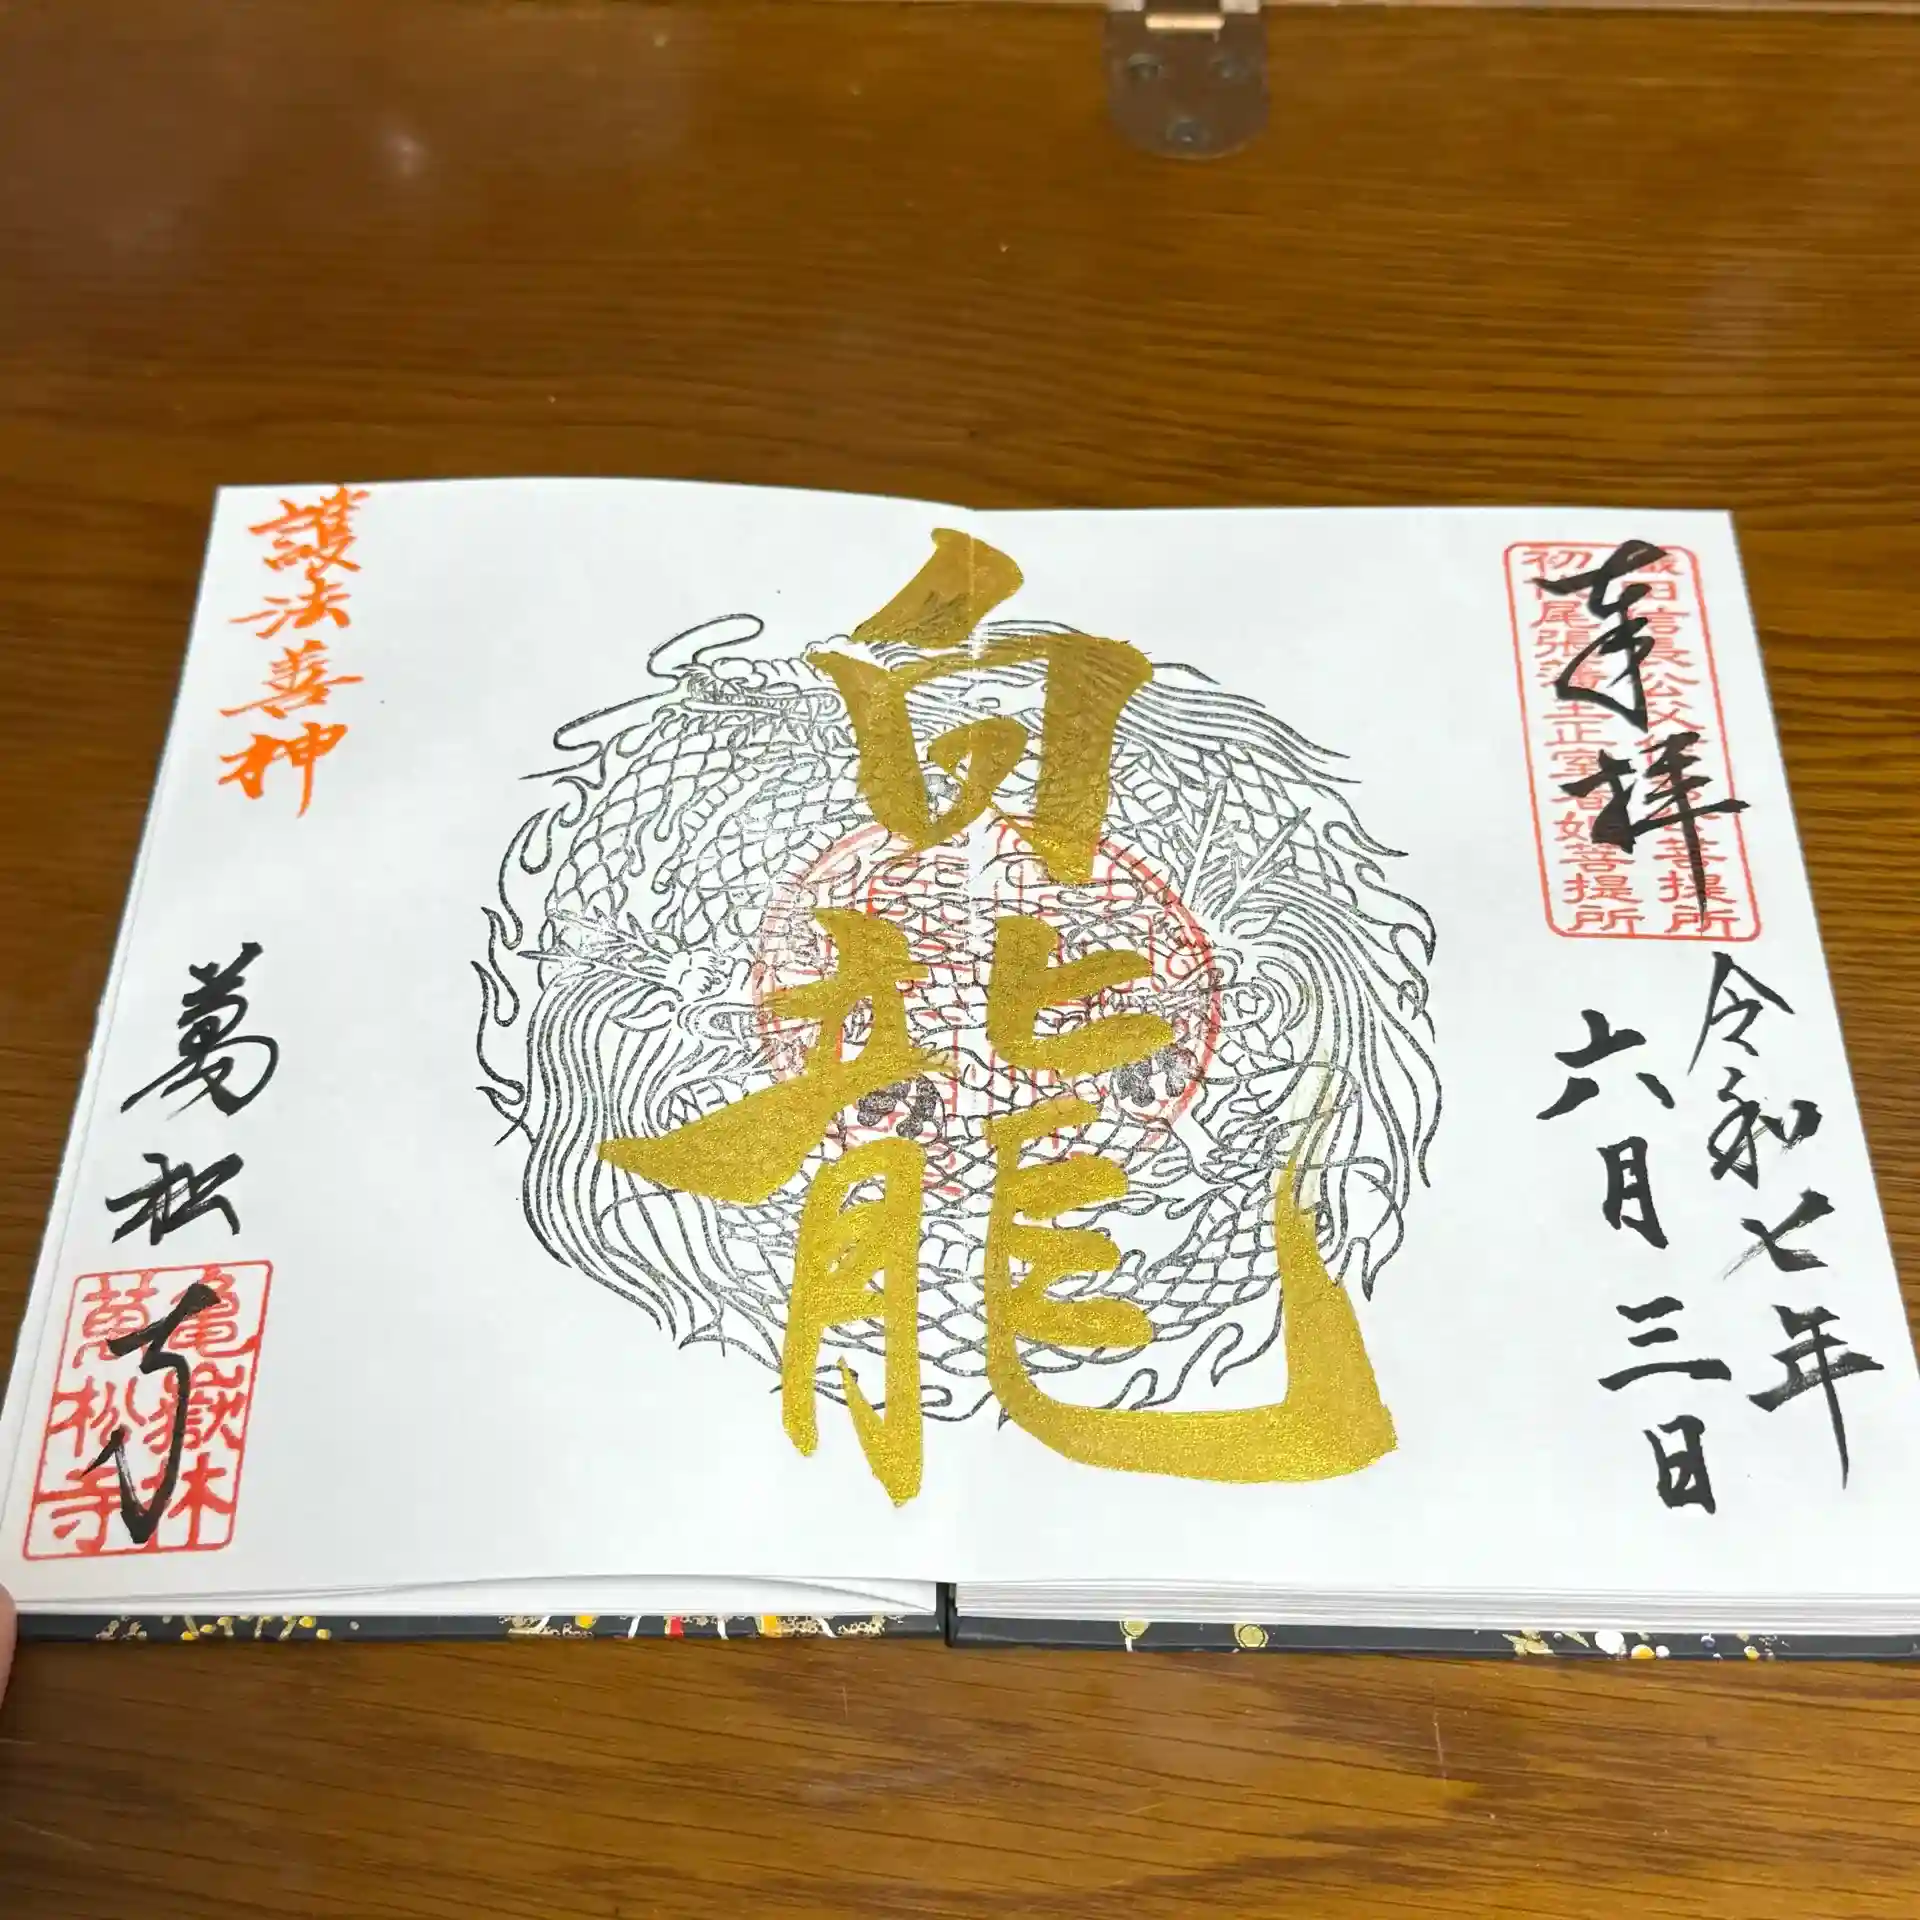 奉拝
織田信長公父信秀公菩提所
初代尾張藩主正室春姫菩提所
令和七年
六月三日
白龍
護法善神
萬松寺
亀嶽林
萬松寺